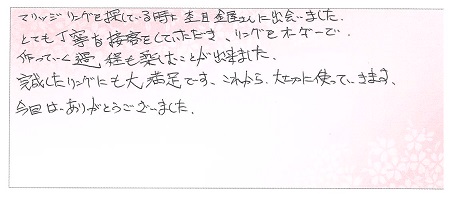 マリッジリングを探している時に杢目金屋さんに出会いました。
とても丁寧な接客をしていただき、リングをオーダーで、
作っていく過程も楽しむことが出来ました。
完成したリングにも大満足です。これから、大切に使っていきます。
今回は、ありがとうございました。